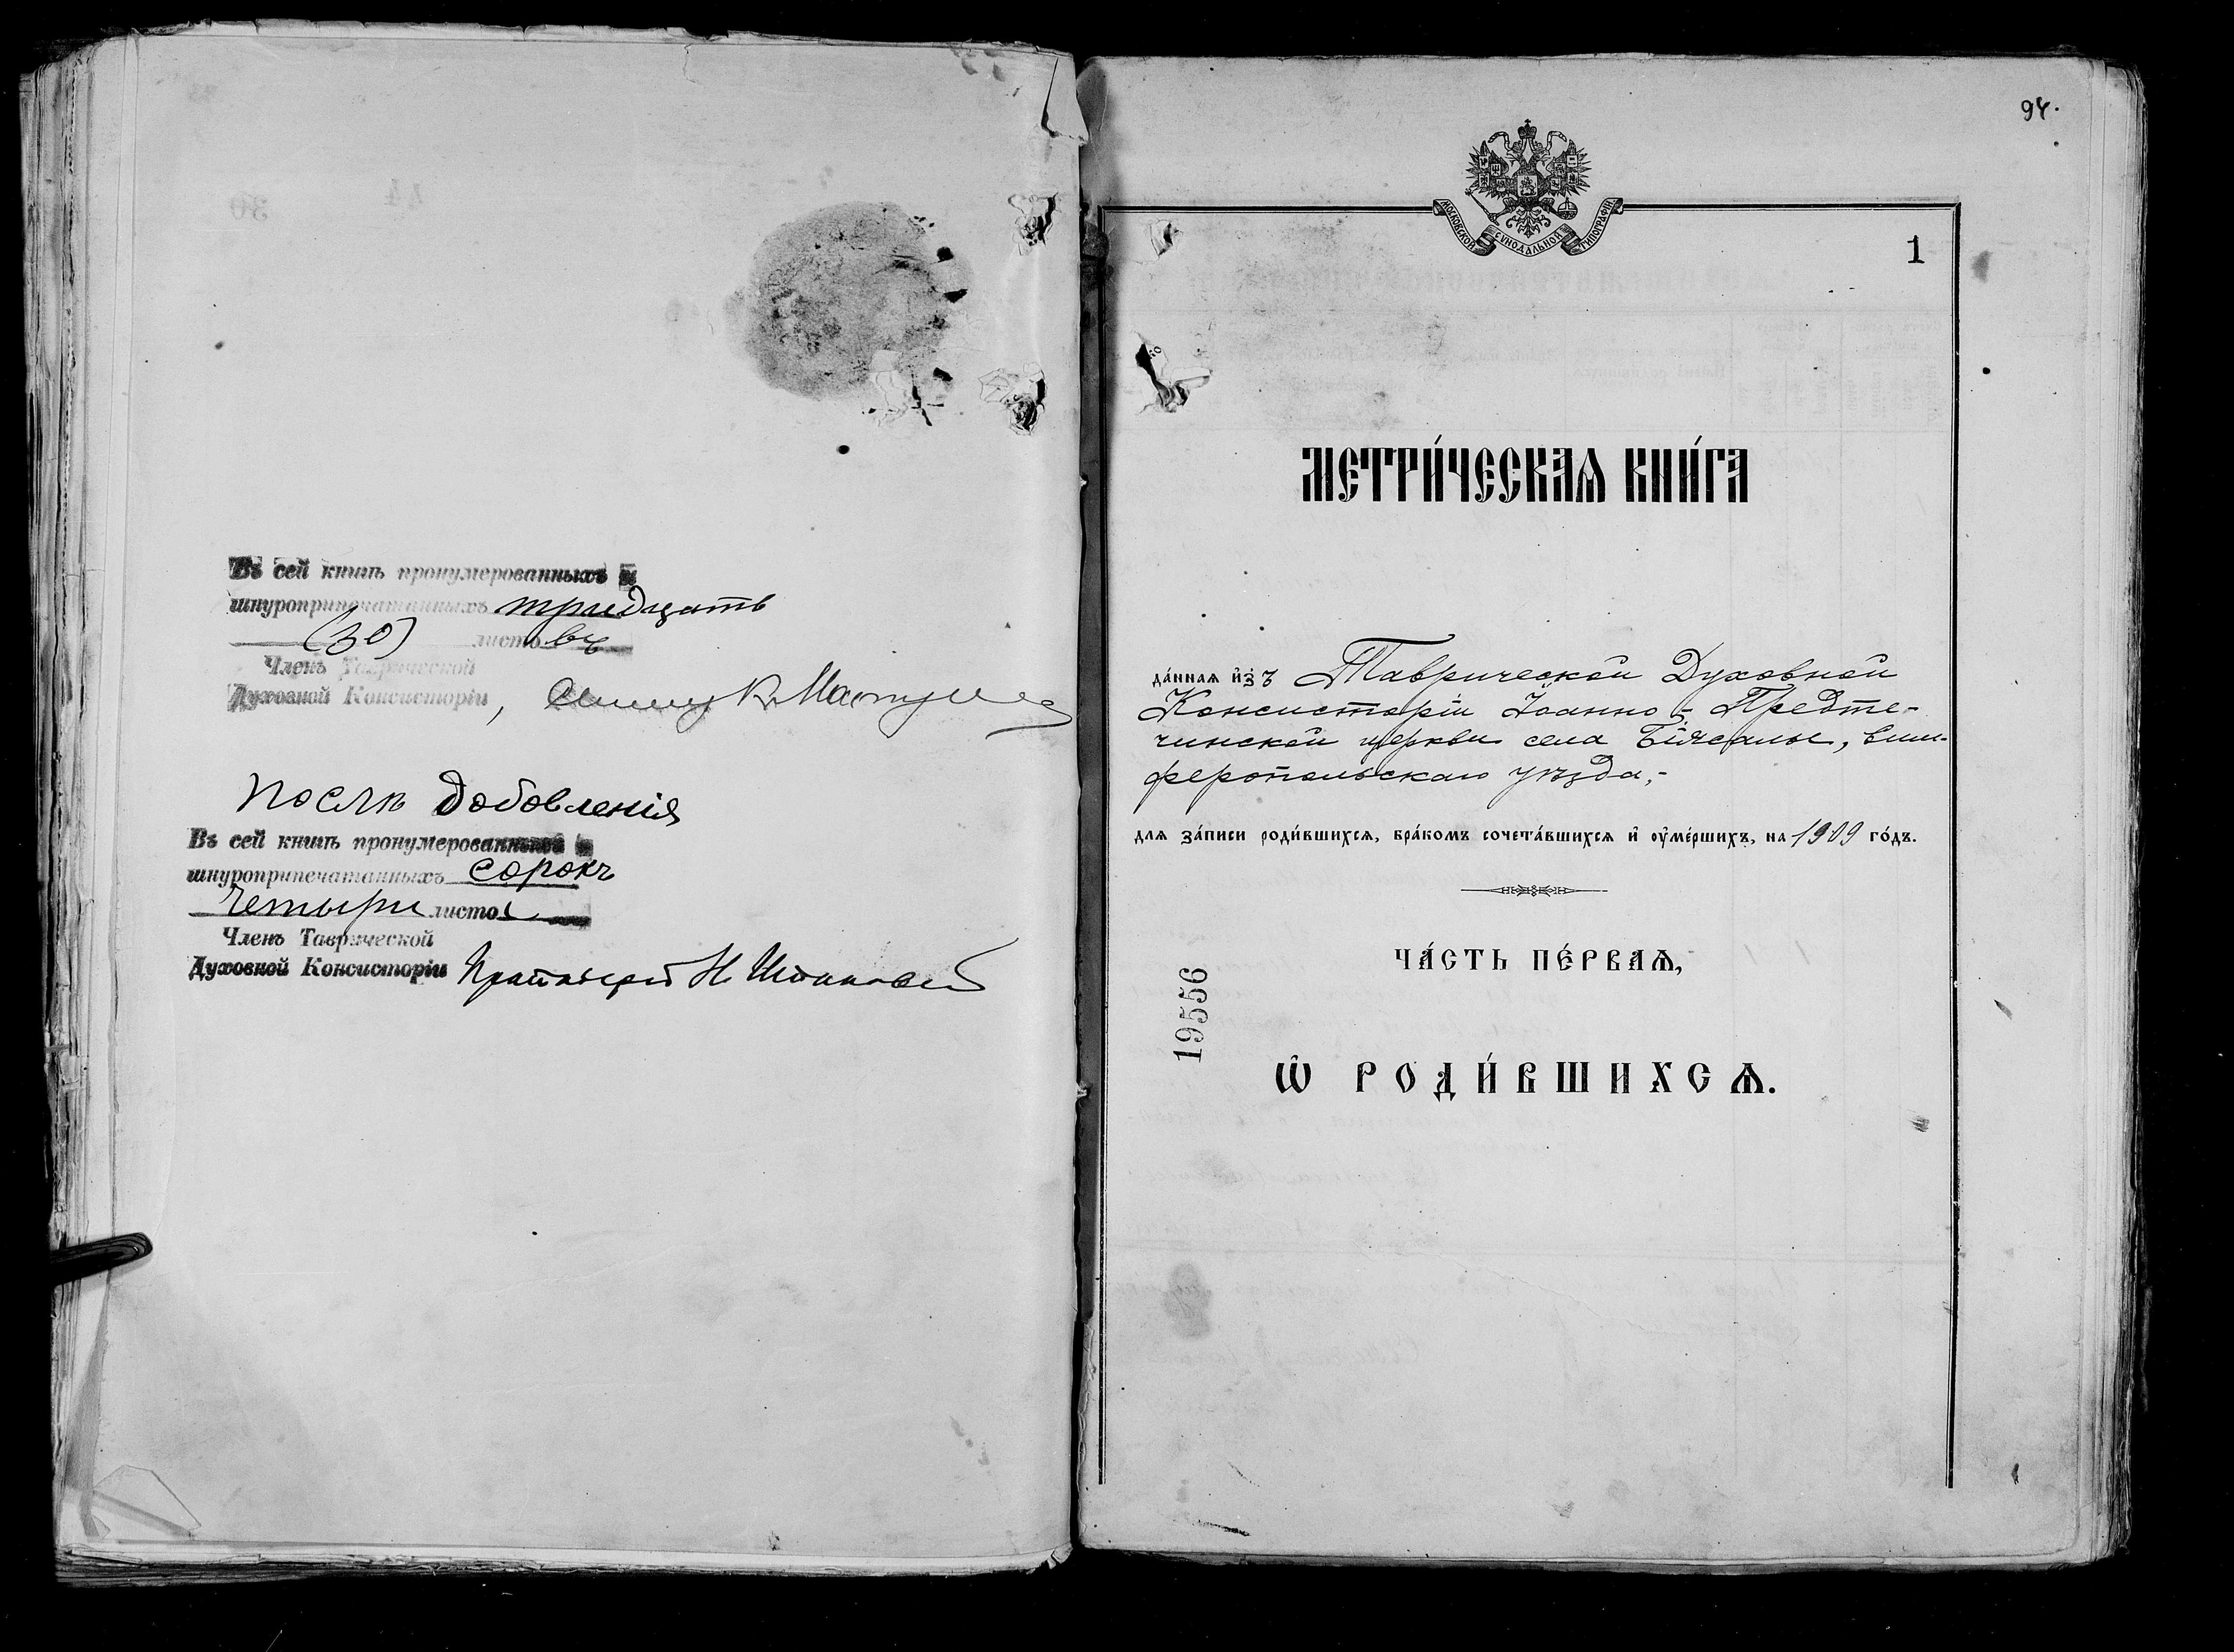 Въ сей книгѣ пронумерованныхъ и
шнуроприпечатанныхъ тридцать
(30) листовъ
Членъ Таврической
Духовной Консисторіи,
Послѣ добовленія
Въ сей книгѣ пронумерованныхъ и
шнуроприпечатанныхъ сорокъ
четыри листа
Членъ Таврической
Духовной Консисторіи Протоіерей Н.
94.
МОСКОВСКОЙ СѴНОДАЛЬНОЙ ТИПОГРАФІИ
1
МЕТРИ́ЧЕСКАѦ КНИ́ГА
да́ннаѧ и҆зъ Таврической Духовной
Консисторіи Іоанно-Предте-
чинской церкви села Біясалы, Сим-
феропольскаго уѣзда,-
для за́писи роди́вшихсѧ, бра́комъ сочета́вшихсѧ и҆ ᲂу҆ме́ршихъ, на 1909 го́дъ.
ЧА́СТЬ ПЕ́РВАѦ,
19556
Ѽ РОДИ́ВШИХСѦ.